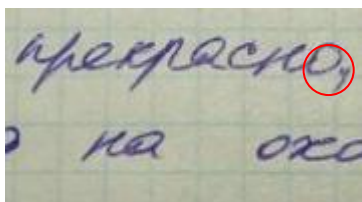 прекрасно,
на охо